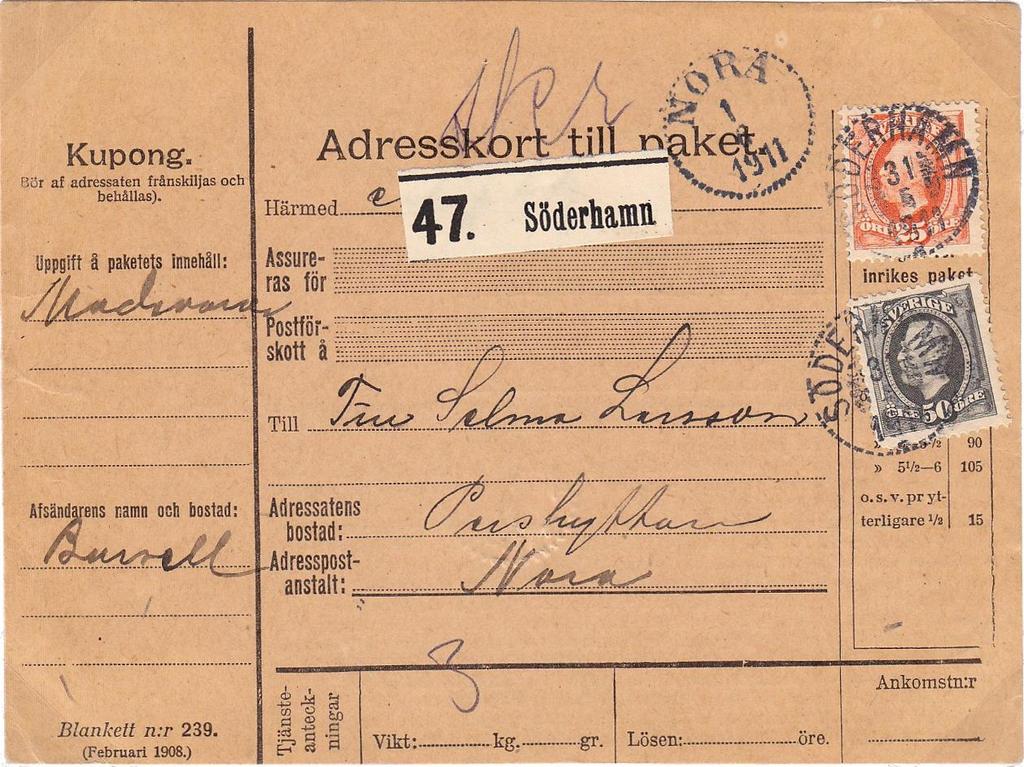 Kupong.
Bör af adressaten frånskiljas och
behållas).
Uppgift å paketets innehåll:
Afsändarens namn och bostad:
Burvall
Blankett n:r 239.
(Februari 1908.)
Adresskort till paket.
NORA
1
1911
Härmed
47. Söderhamn
Assure-
ras för
Postför-
skott å
Till Fru Selma Larsson
Adressatens
bostad: Pershyttan
Adresspost-
anstalt: Nora
3
Tjänste-
anteck-
ningar
Vikt: kg. gr.
Lösen: öre.
SÖDERHAMN
31
5
ÖRE 25
inrikes paket
SVERIGE
ÖRE 50 ÖRE
90
» 5½—6 105
o. s. v. pr yt-
terligare ½ 15
Ankomstn:r